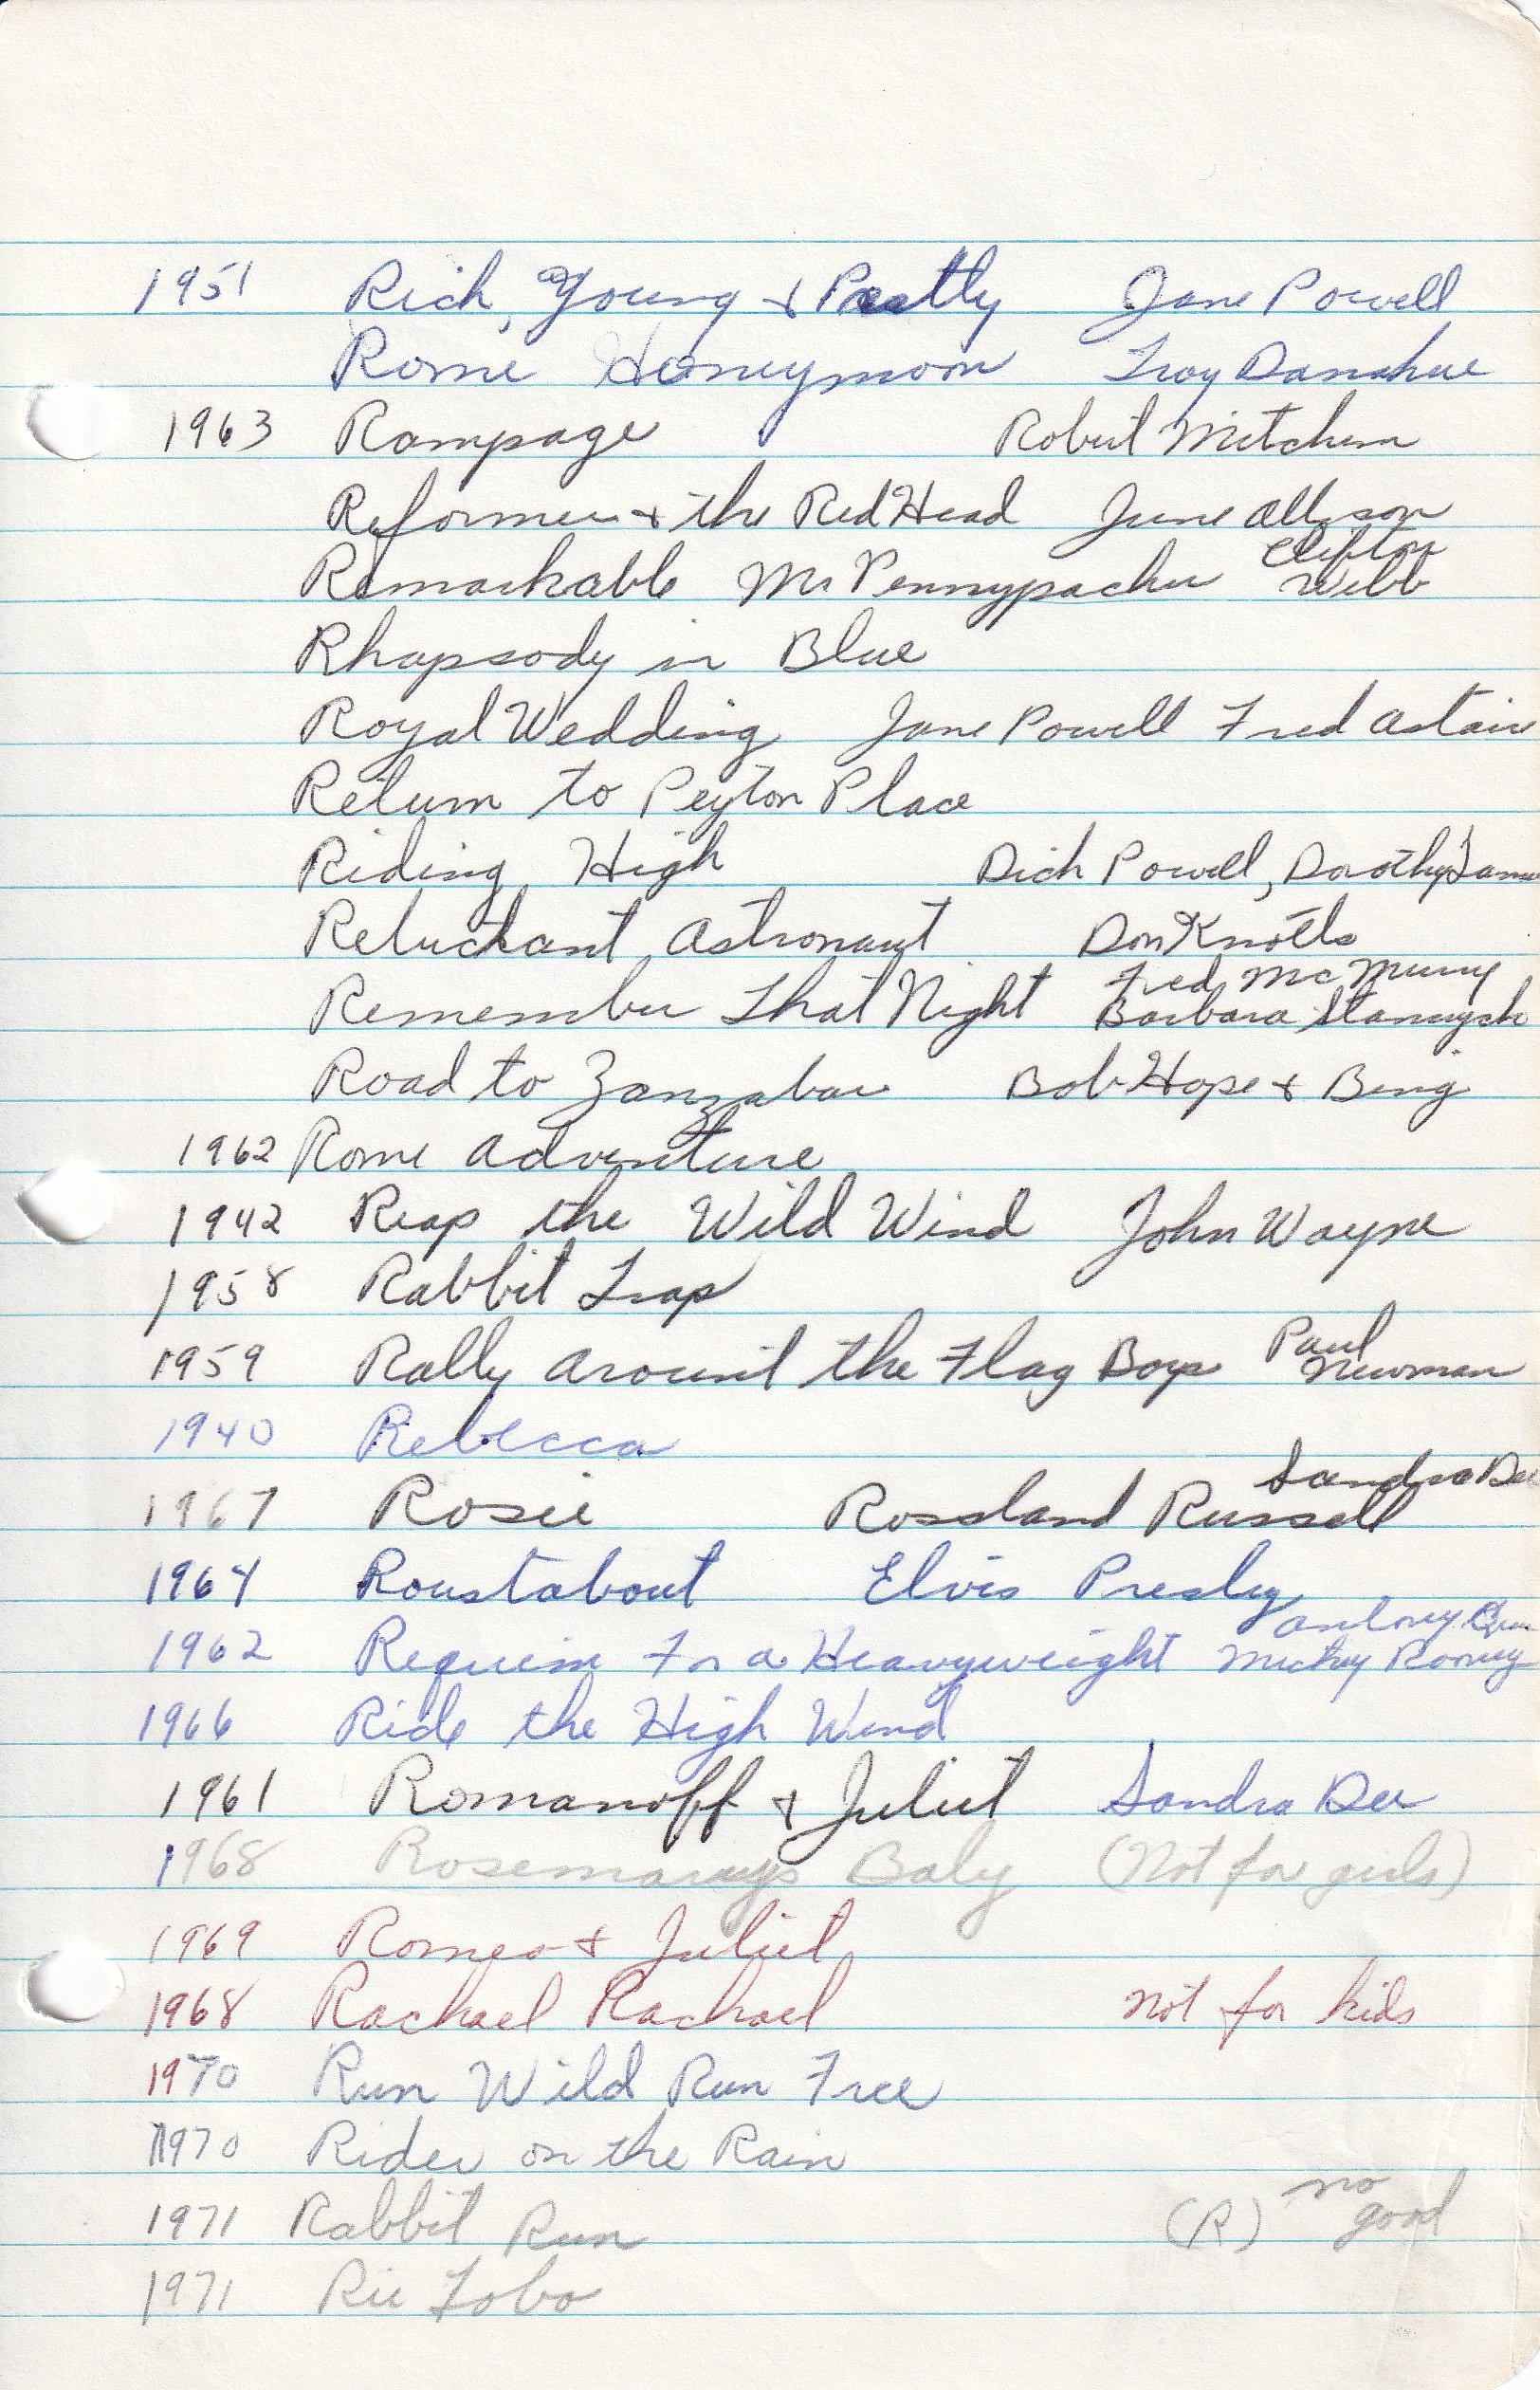 1951 Rich, Young + Pretty Jane Powell
Rome Honeymoon Troy Danahue
1963 Rampage Robert Mitchem
Reformer + the Red Head June Allyson
Clifton
Remarkable Mr Pennypacker Webb
Rhapsody in Blue
Royal Wedding Jane Powell Fred Astair
Return to Peyton Place
Riding High Dick Powell, Dorothy Lamo
Reluctant Astronaut Don Knotts
Fred McMurry
Remember that Night Barbara Stanwyck
Road to Zanzabar Bob Hope + Bing
1962 Rome Adventure
1942 Reap the Wild Wind John Wayne
1958 Rabbit Trap
Paul
1959 Rally Around the Flag Boys Newman
1940 Rebecca
Sandra Dee
1967 Rosie Rossland Russell
1964 Roustabout Elvis Presley
Antony
1962 Requiem For a Heavyweight Mickey Rooney
1966 Ride the High Wind
1961 Romanoff + Juliet Sandra Dee
1968 Rosemarys Baby (Not for girls)
1969 Romeo + Juliet
1968 Rachael Rachael not for kids
1970 Run Wild Run Free
1970 Rider on the Rain
no
1971 Rabbit Run (R) good
1971 Rio Lobo